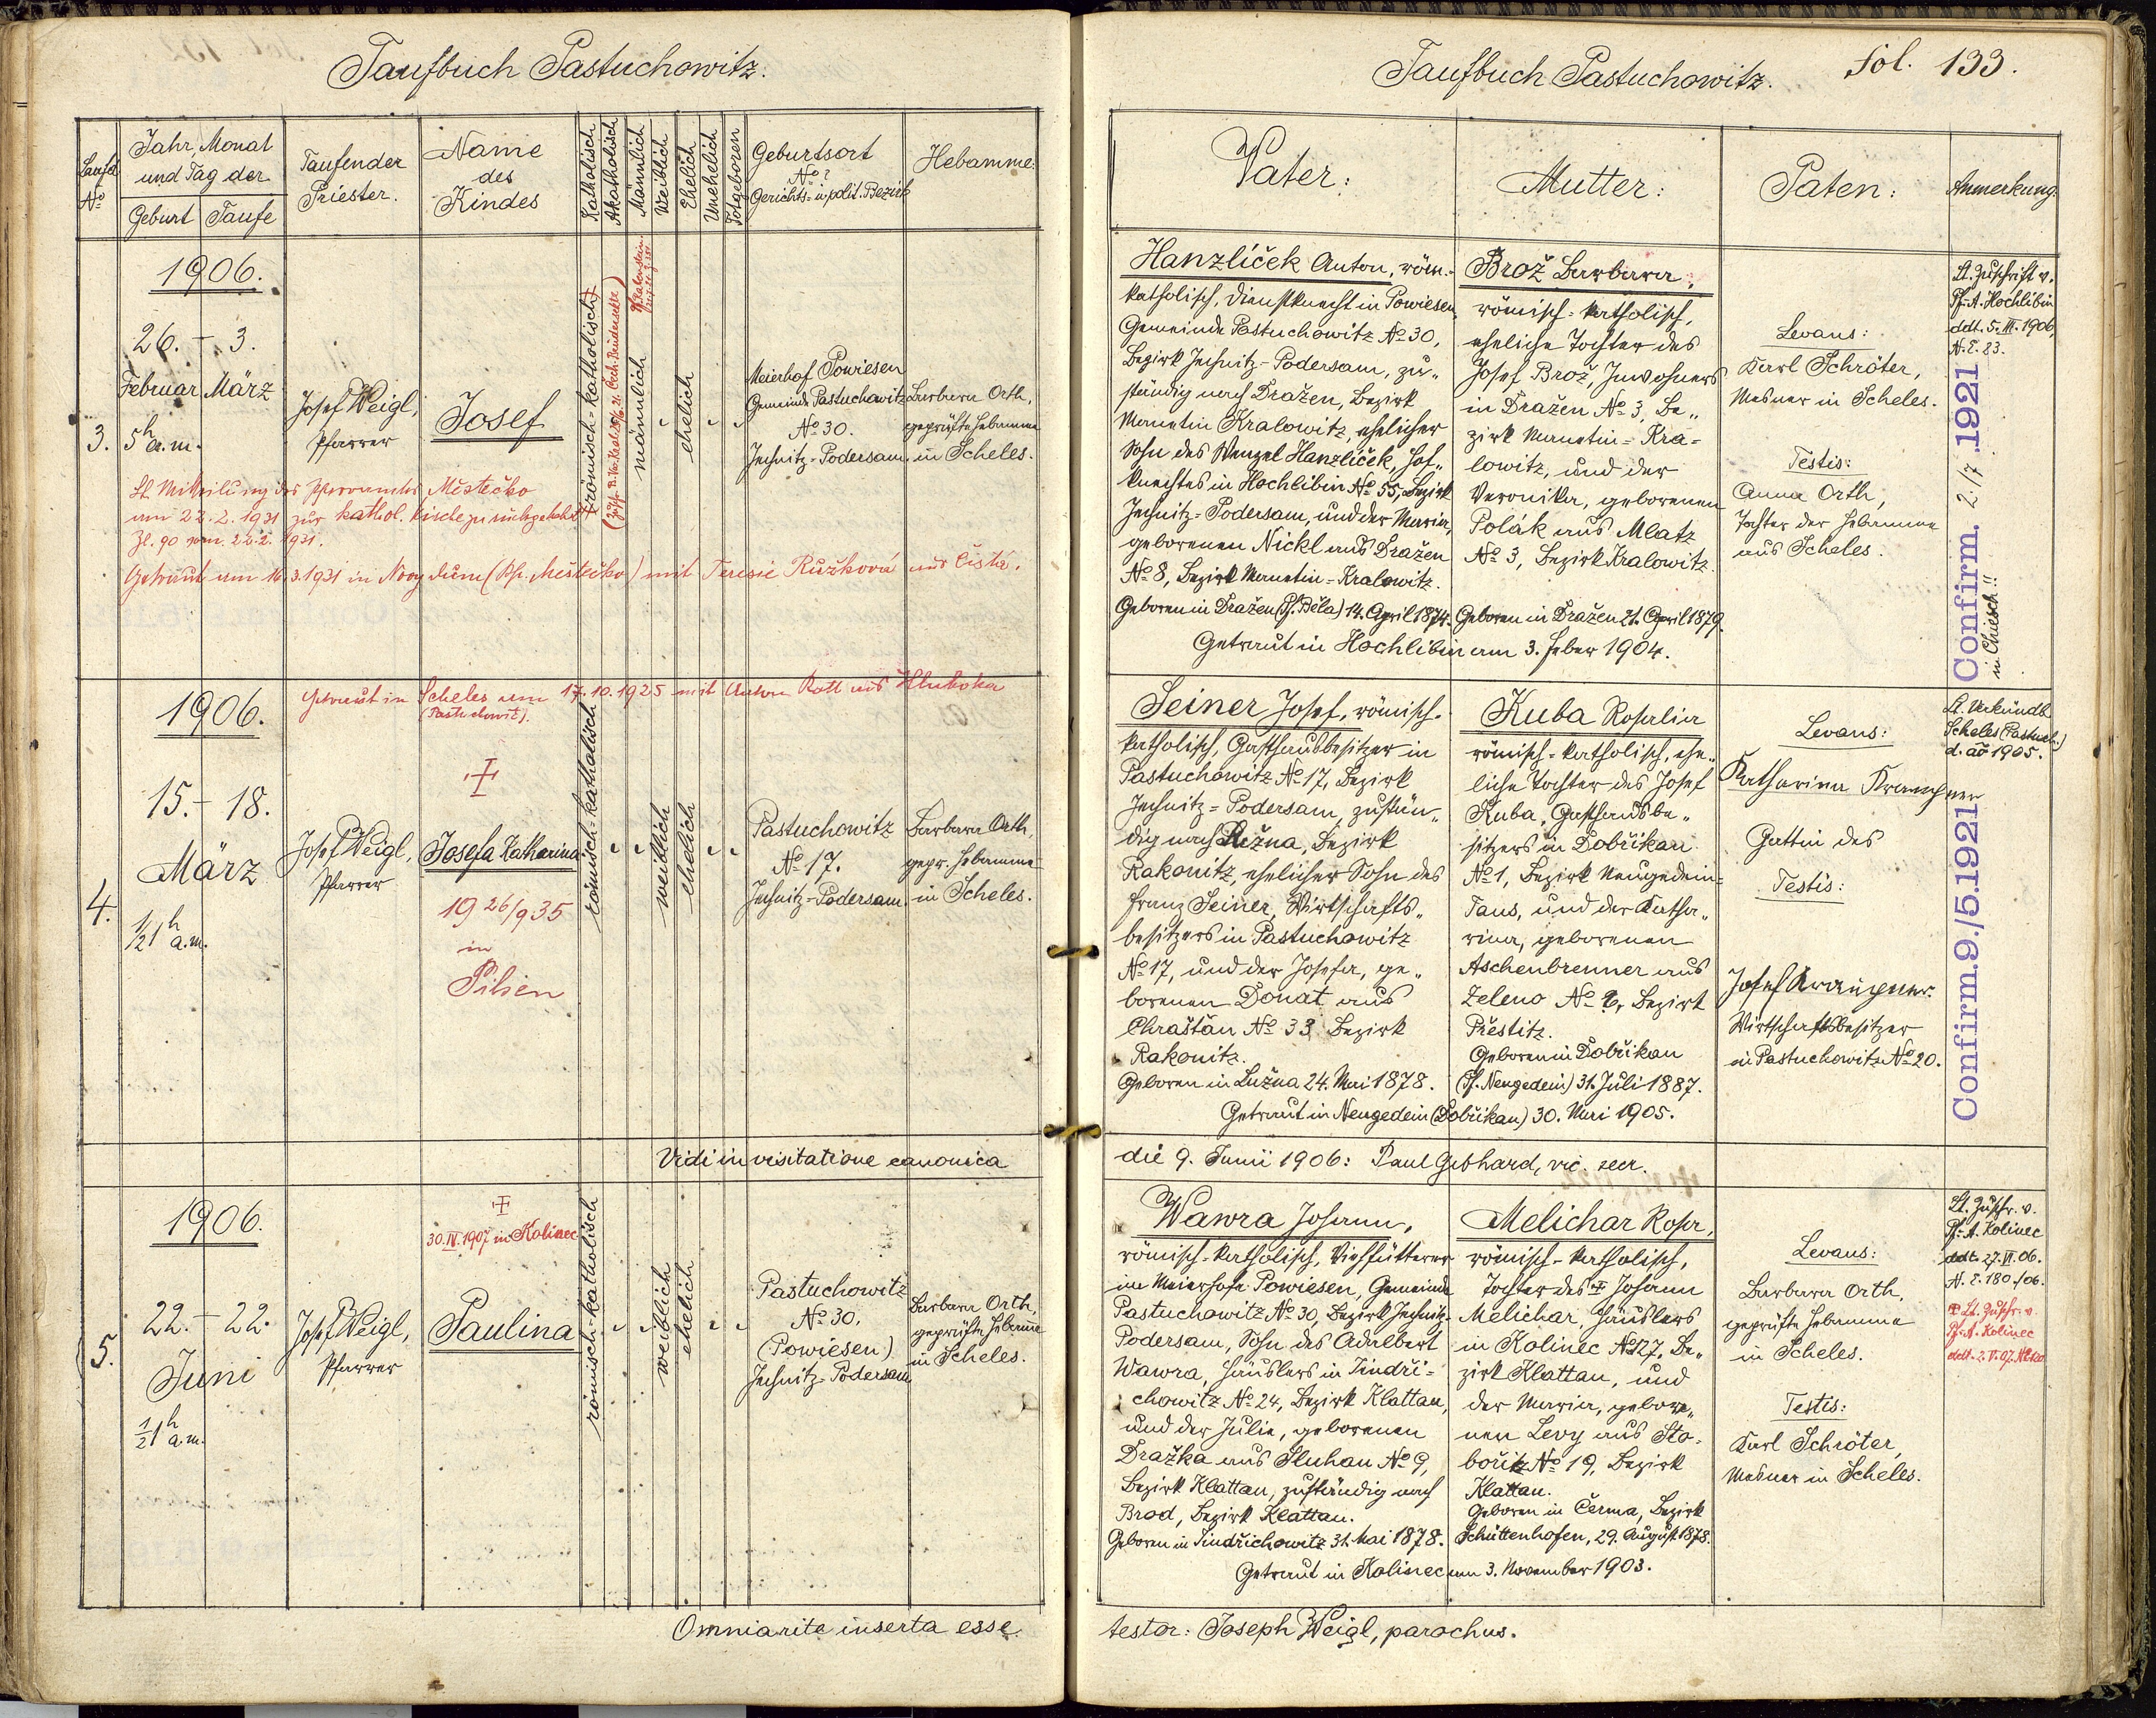 Taufbuch Pastuchowitz.
Laufd. No
Jahr, Monat und Tag der
Geburt Taufe
Taufender Priester.
Name des Kindes
Katholisch
Akatholisch
Männlich
Weiblich
Ehelich
Unehelich
Totgeboren
Geburtsort
No?
Gerichts- u. polit. Bezirk
Hebamme:
1906.
26. - 3.
Februar März
3. 5h a.m.
Josef Weigl,
Pfarrer
Josef
römisch-katholisch
männlich
ehelich
Meierhof Powiesen
Gemeinde Pastuchowitz
No 30.
Jechnitz-Podersam.
Barbara Orth,
geprüfte Hebamme
in Scheles.
Lt. Mitteilung des Pfarramtes Městečko
am 22.2.1931 zur kathol. Kirche zurückgekehrt
Zl. 90 vom 22.2.1931.
Getraut am 16.3.1931 in Nový dům (Pf. Městečko) mit Teresie Růžková aus Čistá.
1906.
Getraut in Scheles am 17.10.1925 mit Anton Rott aus Hluboka
(Pastuchowitz).
15. - 18.
März
4.
1/2 1h a.m.
Josef Weigl,
Pfarrer
Josefa Katharina
19 26/9 35
in
Pilsen
römisch-katholisch
weiblich
ehelich
Pastuchowitz
No 17.
Jechnitz-Podersam.
Barbara Orth,
gepr. Hebamme
in Scheles.
Vidi in visitatione canonica
1906.
30.IV.1907 in Kolinec
22. - 22.
Juni
5.
1/2 1h a.m.
Josef Weigl,
Pfarrer
Paulina
römisch-katholisch
weiblich
ehelich
Pastuchowitz
No 30.
(Powiesen)
Jechnitz-Podersam
Barbara Orth,
geprüfte Hebamme
in Scheles.
Omnia rite inserta esse
Taufbuch Pastuchowitz.
fol. 133.
Vater:
Mutter:
Paten:
Anmerkung.
Hanzlíček Anton, röm.-
katholisch, Dienstknecht in Powiesen,
Gemeinde Pastuchowitz No 30,
Bezirk Jechnitz-Podersam, zu-
ständig nach Dražen, Bezirk
Manetin Kralowitz, ehelicher
Sohn des Wenzel Hanzlíček, Hof-
knechtes in Hochlibin No 55, Bezirk
Jechnitz-Podersam, und der Maria,
geborenen Nickl aus Dražen
No 8, Bezirk Manetin-Kralowitz.
Geboren in Dražen (Pf. Běla) 14. April 1874.
Brož Barbara,
römisch-katholisch,
eheliche Tochter des
Josef Brož, Inwohners
in Dražen No 3, Be-
zirk Manetin-Kra-
lowitz, und der
Veronika, geborenen
Polák aus Mlatz
No 3, Bezirk Kralowitz.
Geboren in Dražen 21. April 1879.
Getraut in Hochlibin am 3. Feber 1904.
Levans:
Karl Schröter,
Mesner in Scheles.
Testis:
Anna Orth,
Tochter der Hebamme
aus Scheles.
Lt. Zuschrift v.
Pf.-A. Hochlibin
ddt. 5.III.1906,
N.E. 83.
Confirm. 2/7 .1921
in Chiesch!!
Seiner Josef, römisch-
katholisch, Gasthausbesitzer in
Pastuchowitz No 17, Bezirk
Jechnitz-Podersam, zustän-
dig nach Lužna, Bezirk
Rakonitz, ehelicher Sohn des
Franz Seiner, Wirtschafts-
besitzers in Pastuchowitz
No 17, und der Josefa, ge-
borenen Donat aus
Chraštan No 33 Bezirk
Rakonitz.
Geboren in Lužna 24. Mai 1878.
Kuba Rosalia
römisch-katholisch, ehe-
liche Tochter des Josef
Kuba, Gasthausbe-
sitzers in Dobřikau
No 1, Bezirk Neugedein-
Taus, und der Katha-
rina, geborenen
Aschenbrenner aus
Zeleno No Bezirk
Přestitz.
Geboren in Dobřikau
(Pf. Neugedein) 31. Juli 1887.
Getraut in Neugedein (Dobřikau) 30. Mai 1905.
Levans:
Katharina
Gattin des
Testis:
Josef
Wirtschaftsbesitzer
in Pastuchowitz No 20.
Lt. Verkündb.
Scheles (Pastuch.)
d. ao 1905.
Confirm. 9./5.1921
die 9. Junii 1906: Paul Gebhard, vic. secr.
Wawra Johann,
römisch-katholisch, Viehfütterer
im Meierhofe Powiesen, Gemeinde
Pastuchowitz No 30, Bezirk Jechnitz-
Podersam, Sohn des Adalbert
Wawra, Häuslers in Jindři-
chowitz No 24, Bezirk Klattau,
und der Julie, geborenen
Dražka aus Sluhau No 9,
Bezirk Klattau, zuständig nach
Brod, Bezirk Klattau.
Geboren in Jindřichowitz 31. Mai 1878.
Melichar Rosa,
römisch-katholisch,
Tochter des † Johann
Melichar, Häuslers
in Kolinec No 27, Be-
zirk Klattau, und
der Maria, gebore-
nen Levy aus Sto-
bořitz No 19, Bezirk
Klattau.
Geboren in Čerma, Bezirk
Schüttenhofen, 29. August 1878.
Getraut in Kolinec am 3. November 1903.
Levans:
Barbara Orth,
geprüfte Hebamme
in Scheles.
Testis:
Karl Schröter,
Mesner in Scheles.
Lt. Zuschr. v.
Pf.-A. Kolinec
ddt. 27.VI.06.
N.E. 180/06.
Lt. Zuschr. v.
Pf.-A. Kolinec
ddt. 2.V.07.
testor: Joseph Weigl, parochus.